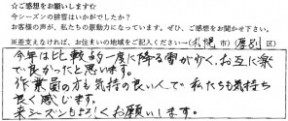 ☆ご感想をお願いします☆
今シーズンの排雪はいかがでしたか？
お客様の声が、私たちの原動力になっています。ぜひ、ご感想をお聞かせ下さい。
※差支えなければ、お住まいの地域をご記入ください→（札幌市）厚別区
今年は比較的一度に降る雪が少く、お互に楽
で良かったと思います。
作業員の方も気持の良い人で私たちも気持ち
良く感じます。
来シーズンもよろしくお願いします。